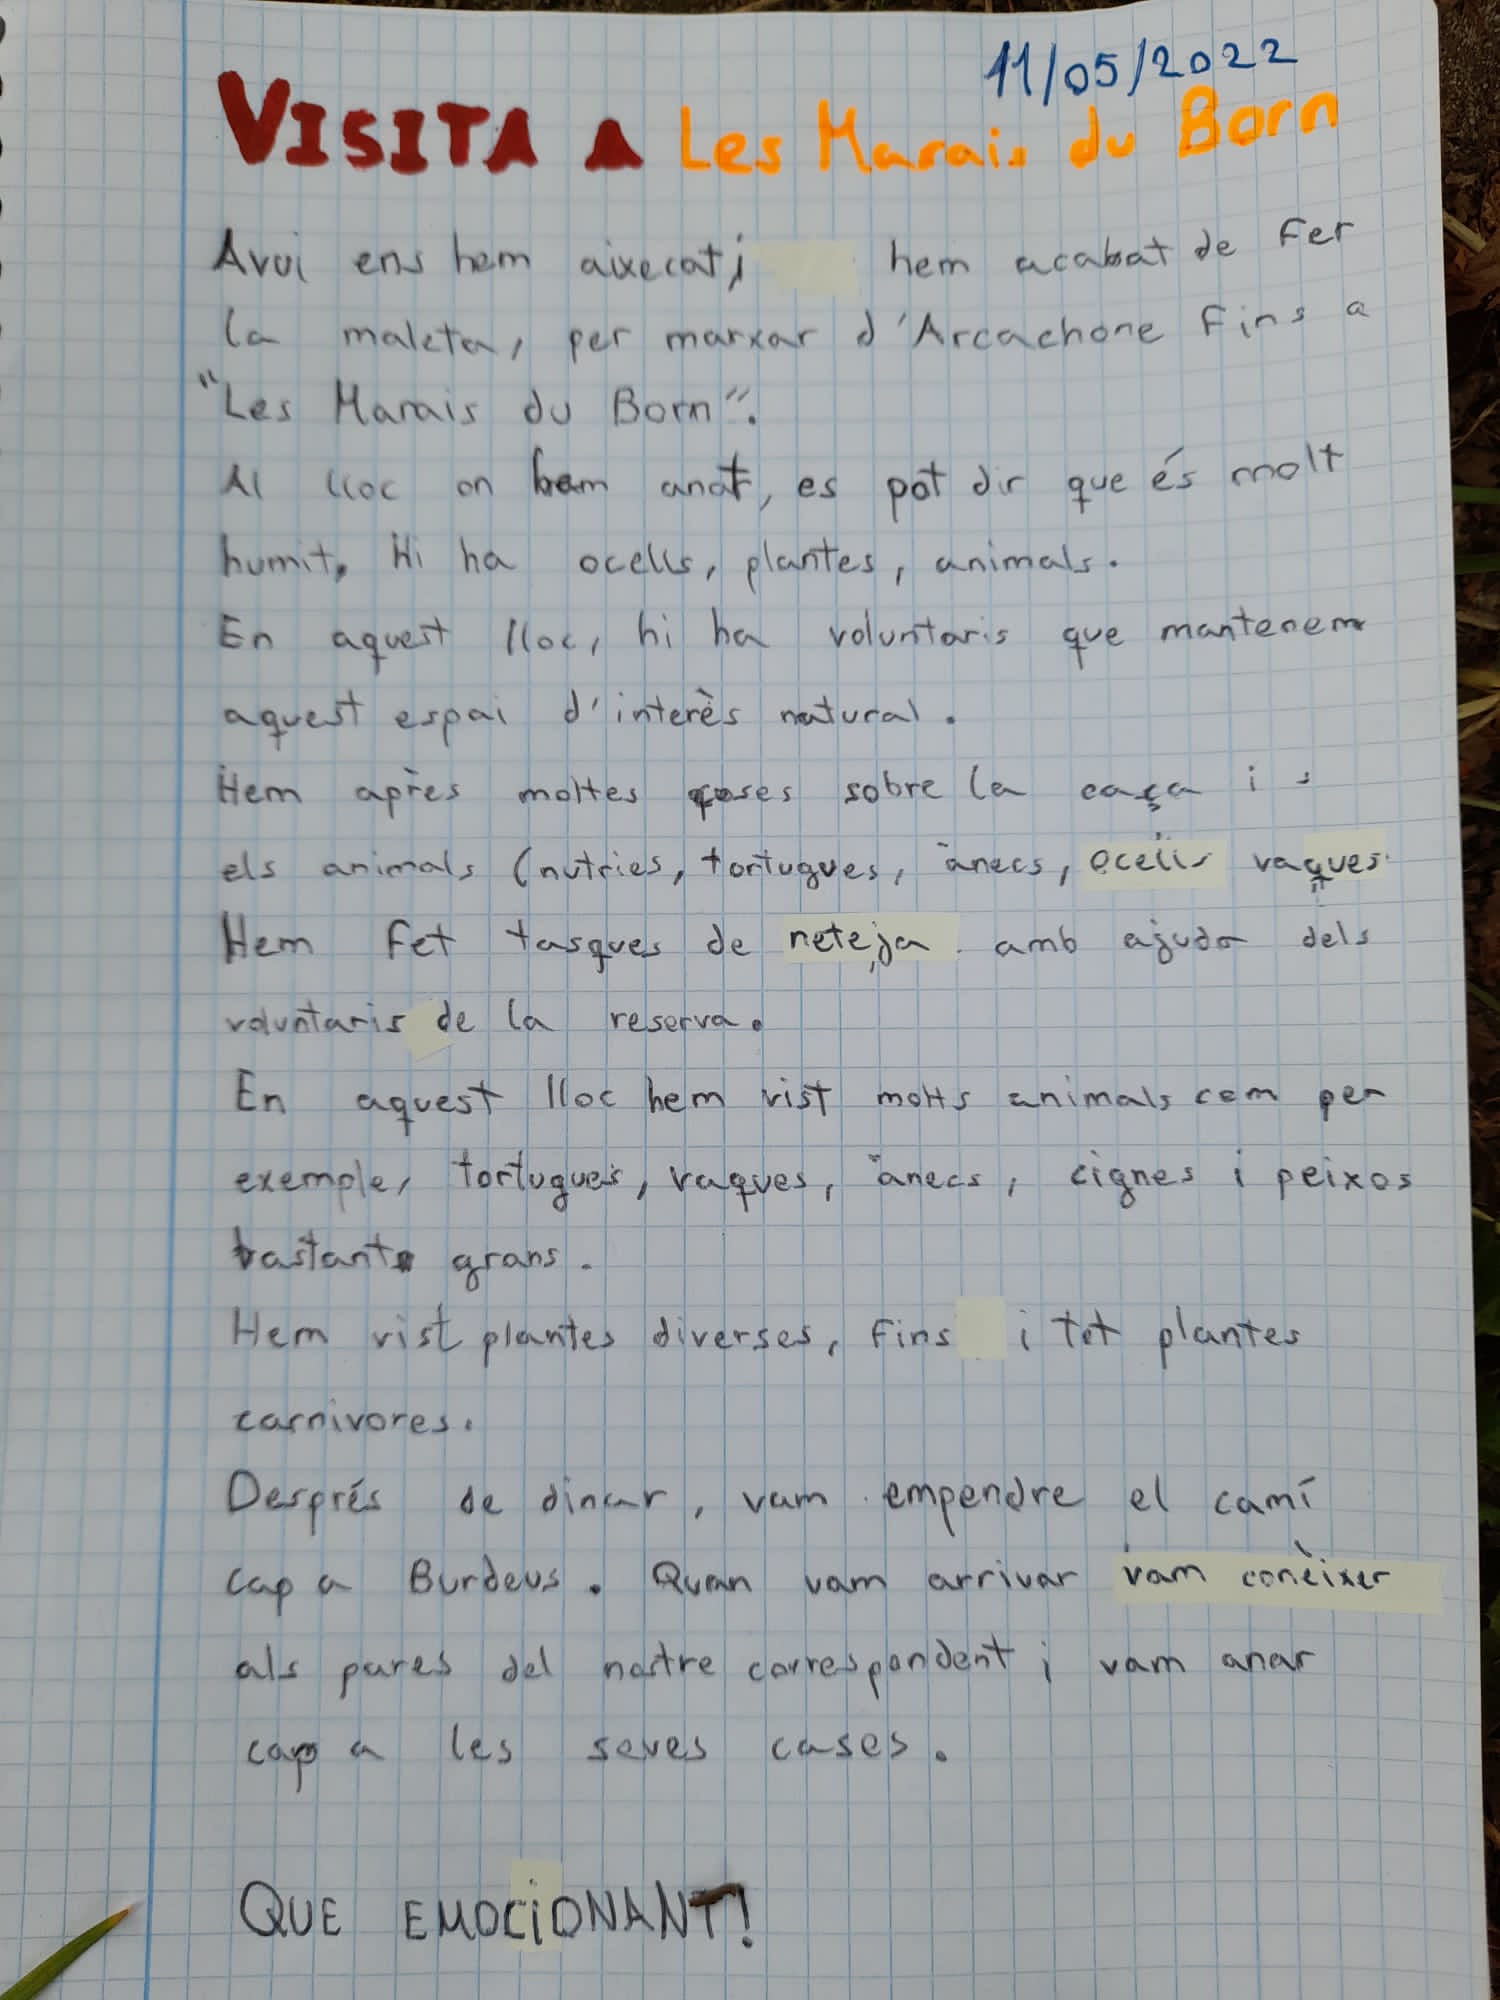 11/05/2022
VISITA A Les Marais du Born
Avui ens hem aixecat i hem acabat de fer
la maleta, per marxar d'Arcachone fins a
"Les Marais du Born".
Al lloc on hem anat, es pot dir que és molt
humit. Hi ha ocells, plantes, animals.
En aquest lloc, hi ha voluntaris que mantenem
aquest espai d'interès natural.
Hem après moltes coses sobre la caça i
els animals (nutries, tortugues, ànecs, ocells vaques
Hem fet tasques de neteja amb ajuda dels
voluntaris de la reserva.
En aquest lloc hem vist molts animals com per
exemple, tortugues, vaques, ànecs, cignes i peixos
bastant grans.
Hem vist plantes diverses, fins i tot plantes
carnivores.
Després de dinar, vam empendre el camí
cap a Burdeus. Quan vam arrivar vam conèixer
als pares del nostre correspondent i vam anar
cap a les seves cases.
QUE EMOCIONANT!